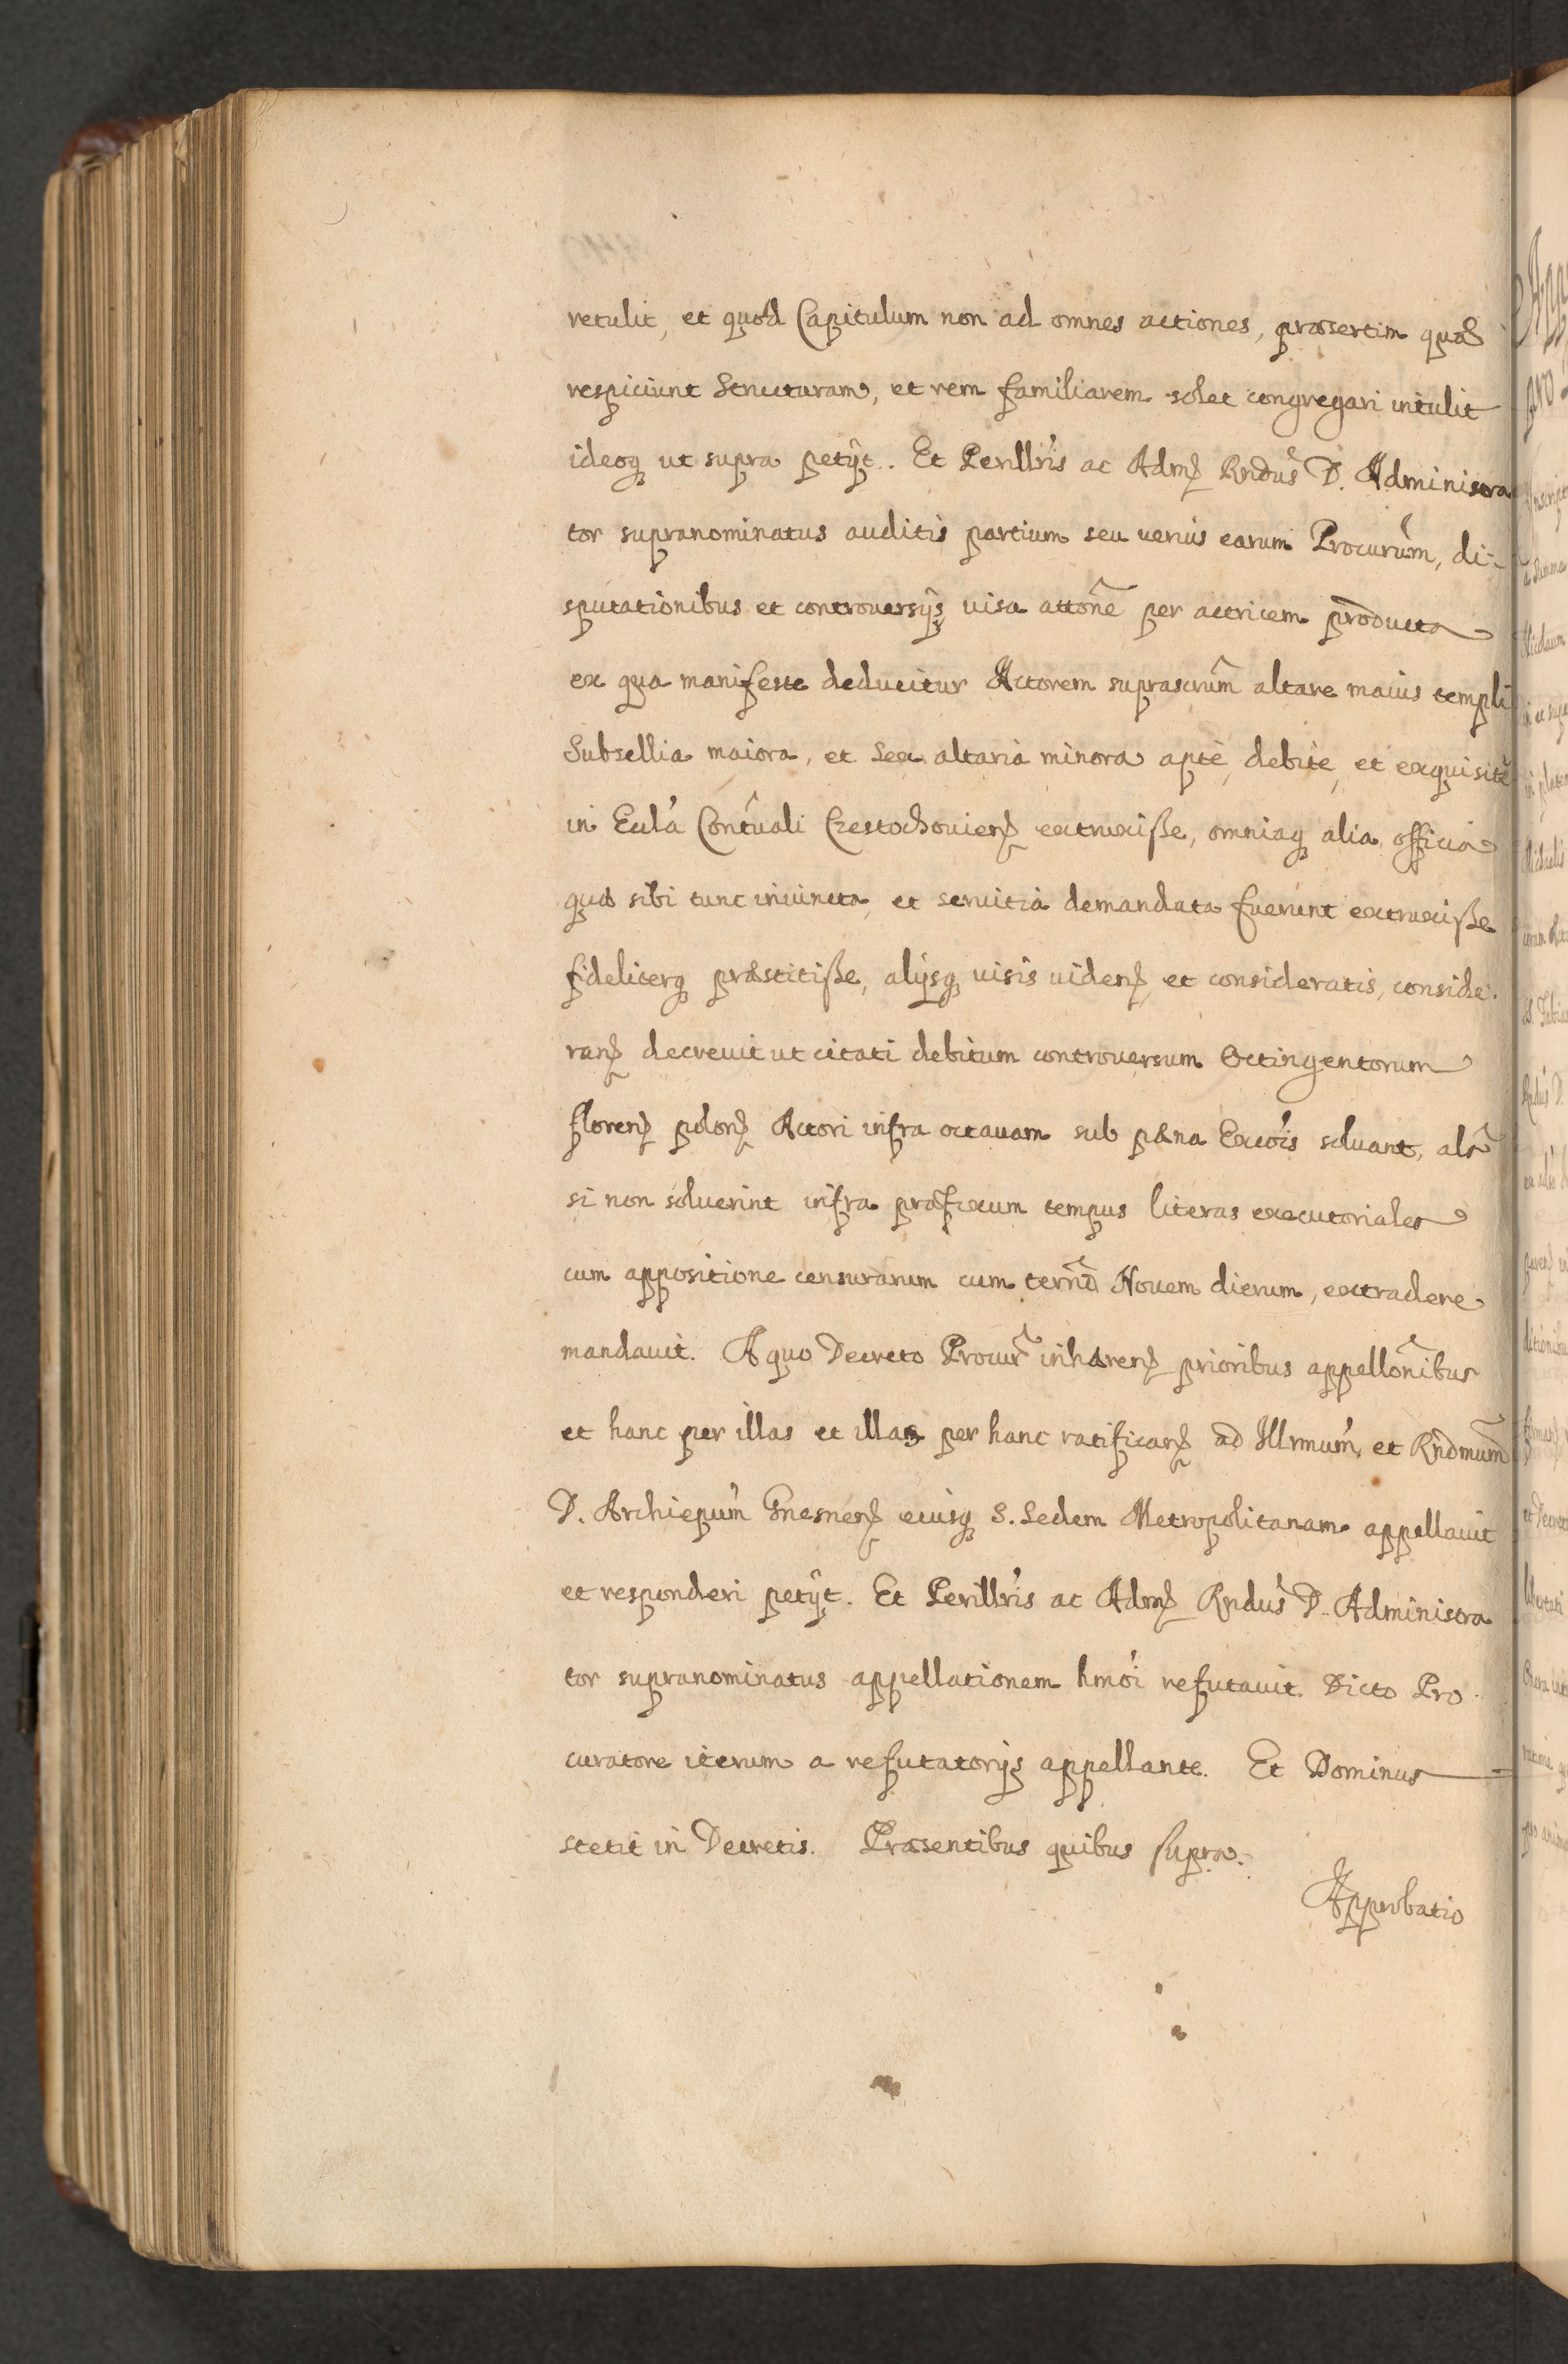 retulit, et quod Capitulum non ad omnes actiones, præsertim quæ
respiciunt Structuram, et rem familiarem solet congregari intulit
ideoq ut supra petÿt. Et Perillris ac Adm Rndus D. Administra
tor supranominatus auditis partium seu verius earum Procurum, di-
sputationibus et controversÿs visa attone per actricem producta
ex qua manifeste deducitur Actorem suprascrum altare maius templi
Subsellia maiora, et Sex altaria minora aptè, debitè, et exquisitè
in Eccla Contuali Czestochoviens extruxisse, omniaq alia officia
quæ sibi tunc iniuncta, et servitia demandata fuerunt extruxisse
fideliterq præstitisse, alÿsq visis videns, et consideratis, conside-
rans decrevit ut citati debitum controversum Octingentorum
floren polon Actori infra octavam sub pæna Excois solvant, als
si non solverint infra præfixum tempus literas executoriales
cum appositione censurarum cum termo Novem dierum, extradere
mandavit. A quo Decreto Procur inhærens prioribus appellonibus
et hanc per illas et illas per hanc ratificans ad Illrmum et Rndmum
D. Archiepum Gnesnens eiusq S. Sedem Metropolitanam appellavit
et responderi petÿt. Et Perillris ac Adm Rndus D. Administra
tor supranominatus appellationem hmoi refutavit. Dicto Pro
curatore iterum a refutatorÿs appellante. Et Dominus
stetit in Decretis. Præsentibus quibus supra.
Approbatio